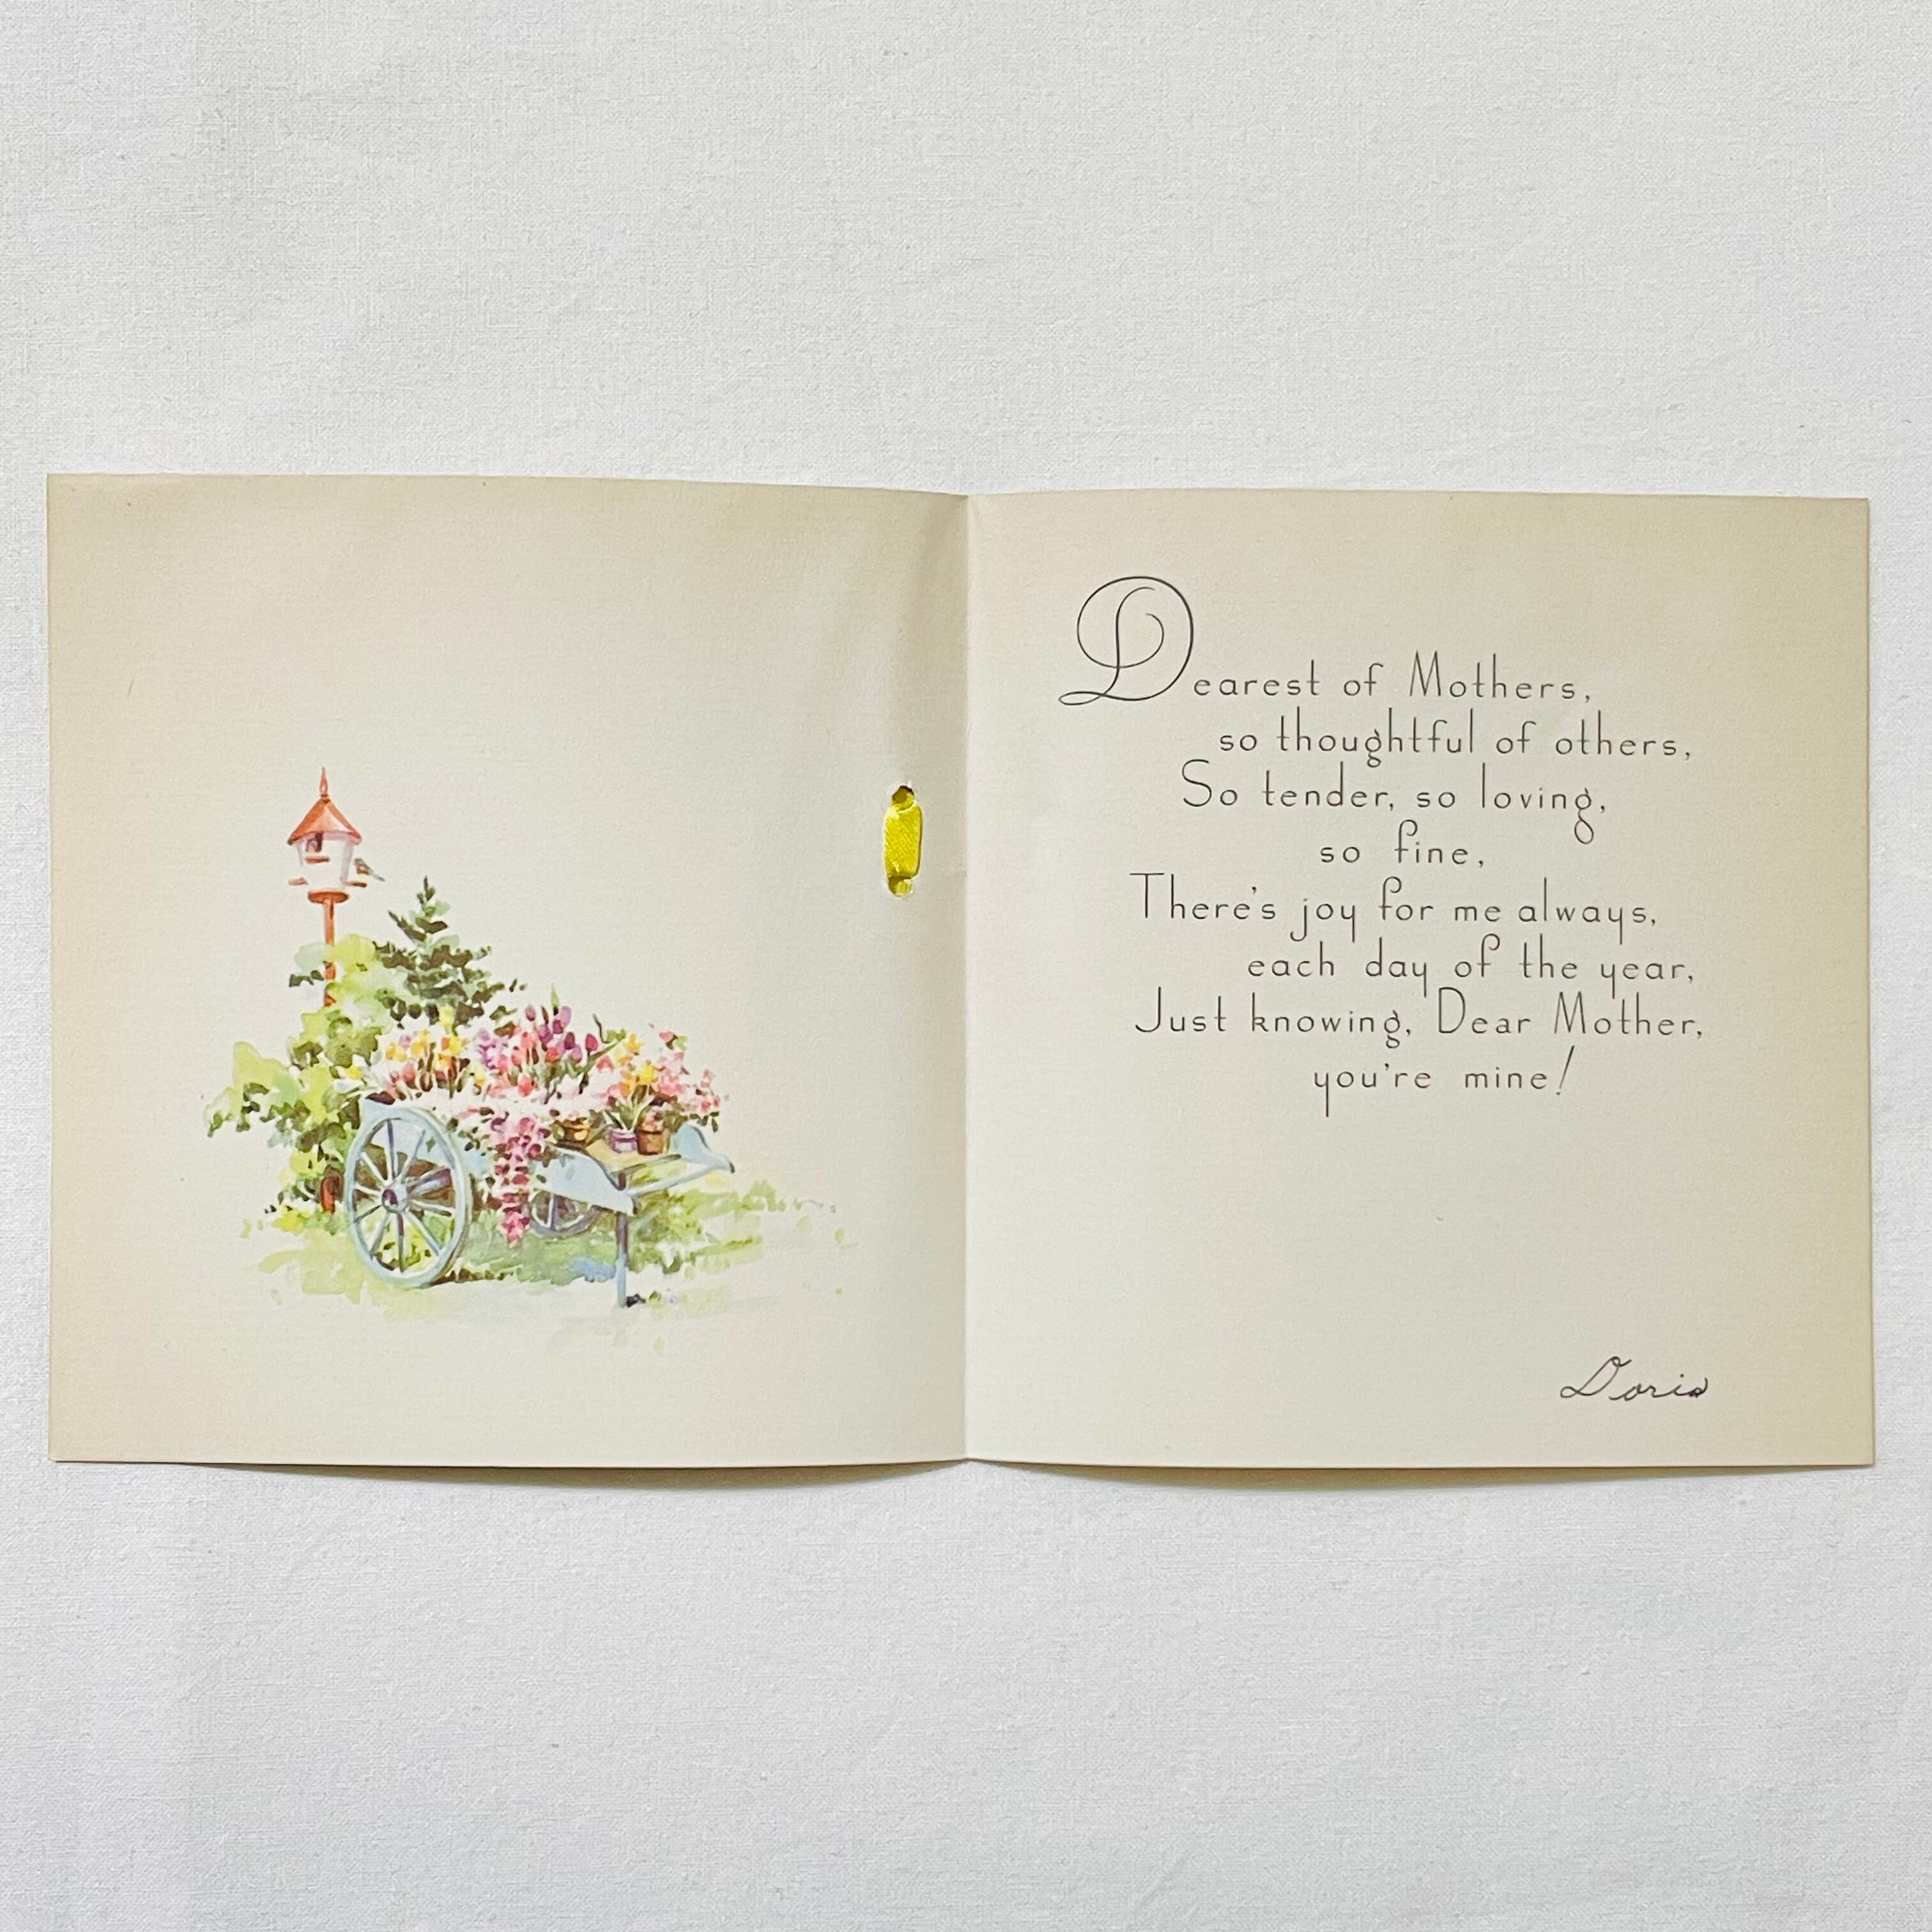 Dearest of Mothers,
so thoughtful of others,
So tender, so loving,
so fine,
There's joy for me always,
each day of the year,
Just knowing, Dear Mother,
you're mine!
Doris